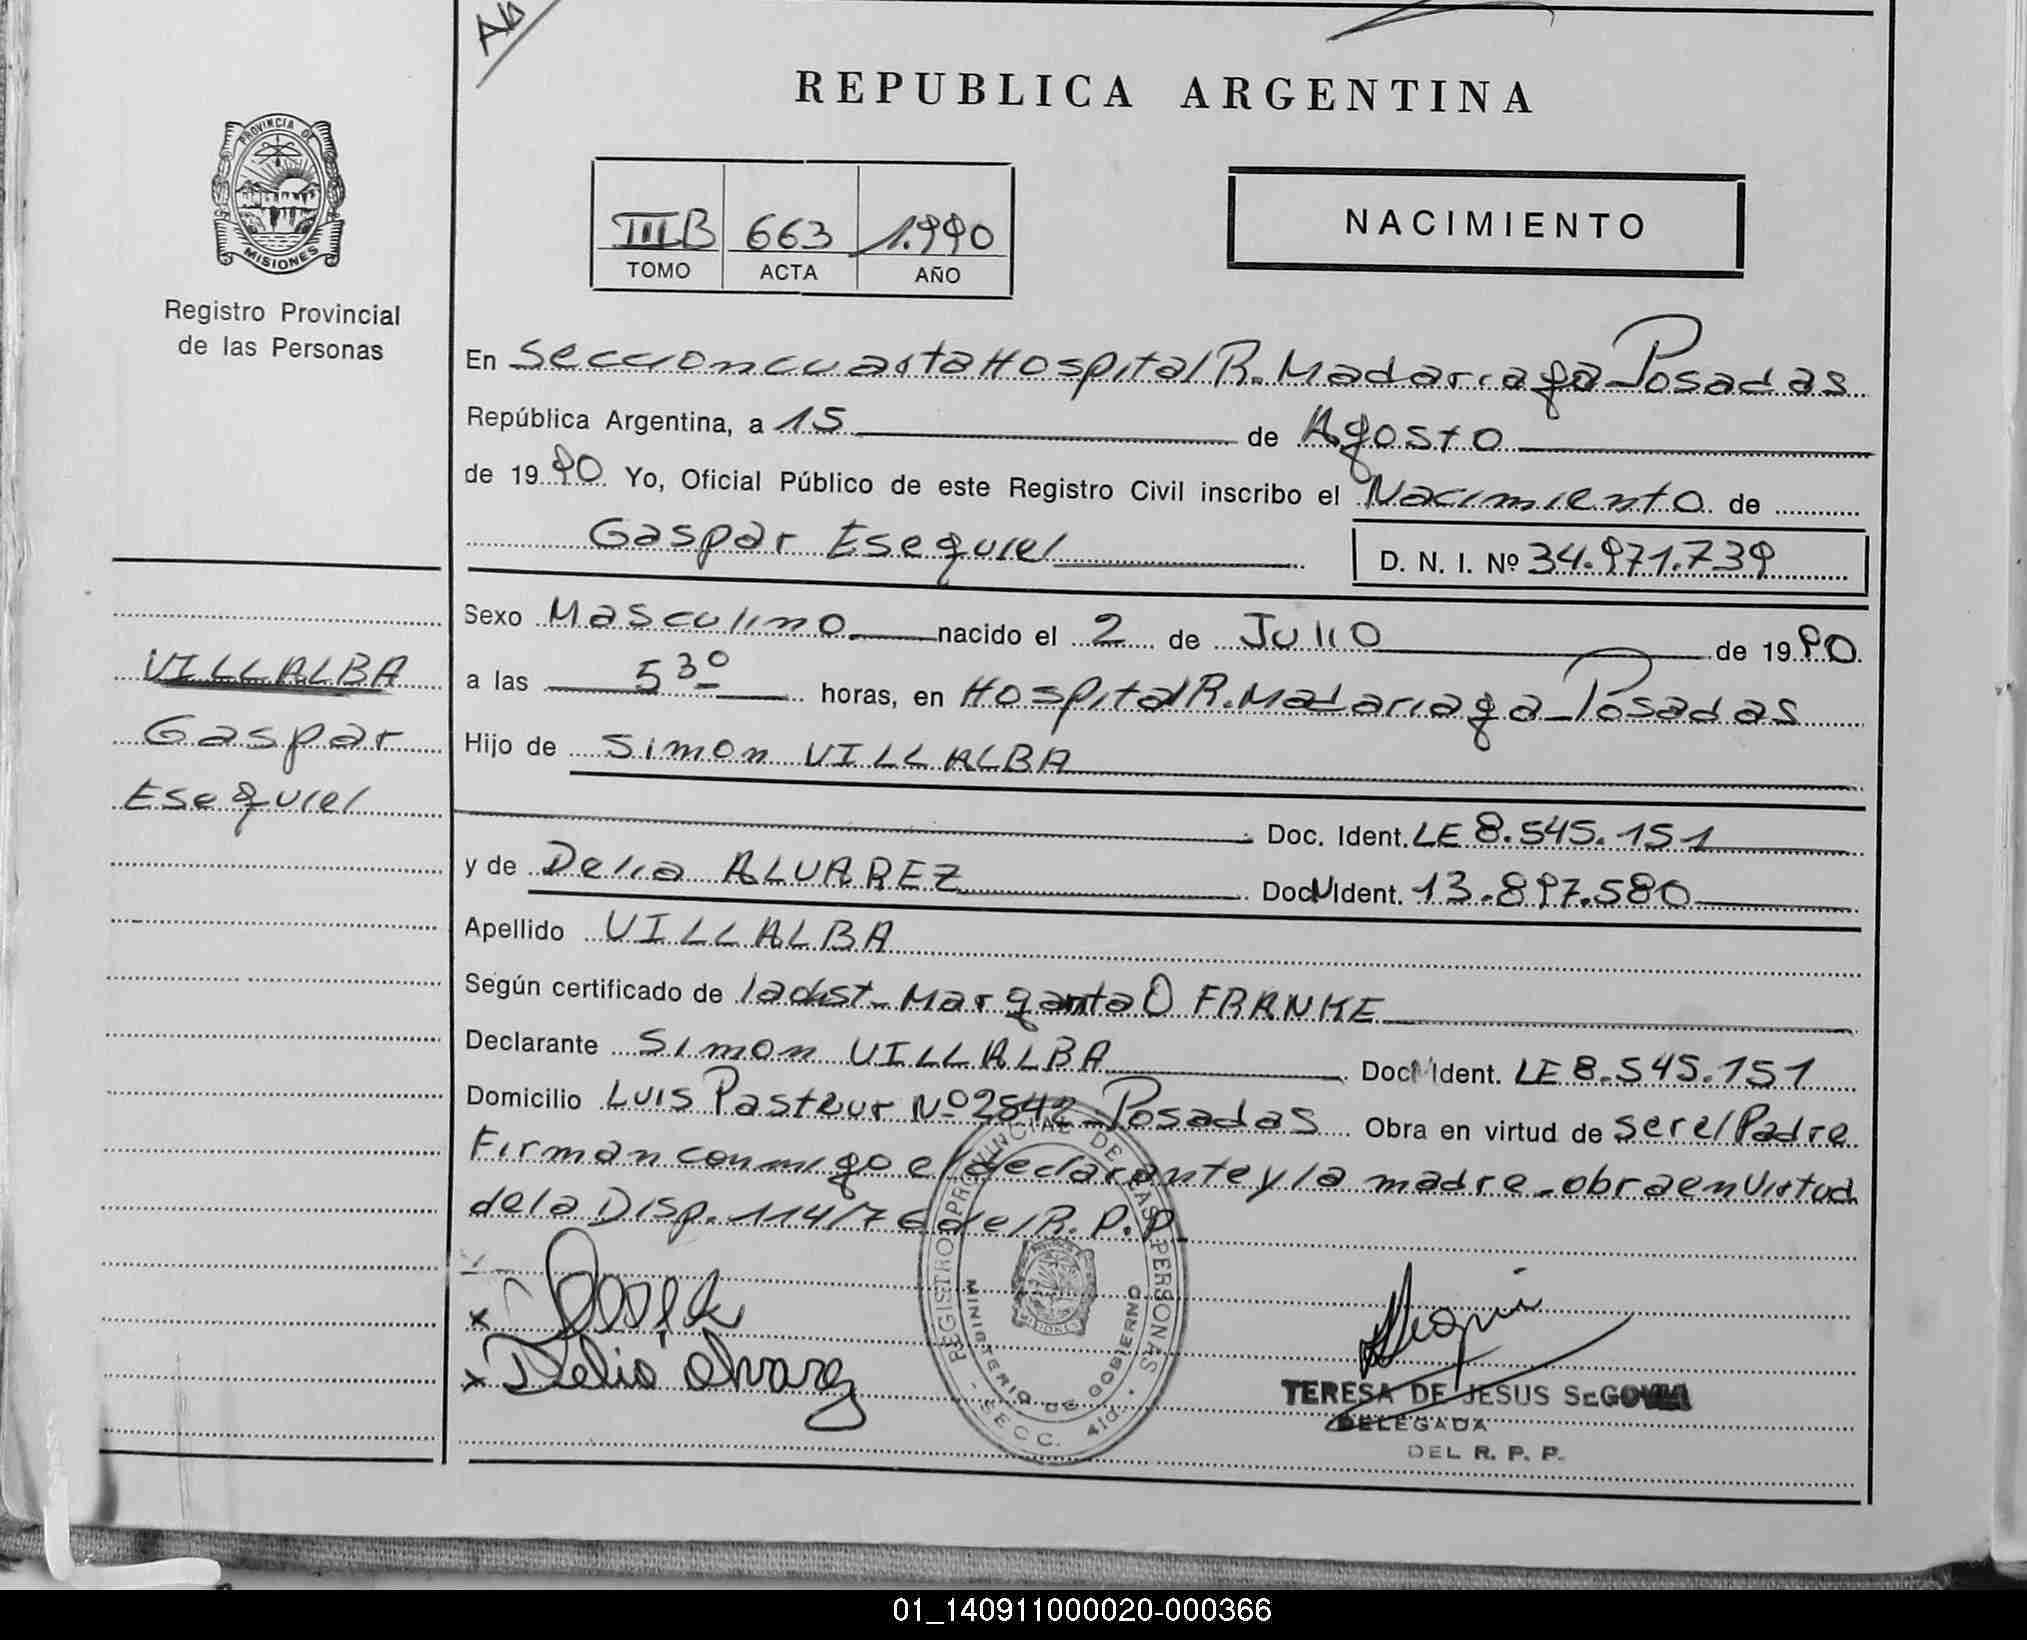 REPUBLICA ARGENTINA
PROVINCIA DE
MISIONES
Registro Provincial
de las Personas
IIIB 663 1.990
TOMO ACTA AÑO
NACIMIENTO
En Seccion cuarta Hospital R. Madariaga - Posadas
República Argentina, a 15 de Agosto
de 1990 Yo, Oficial Público de este Registro Civil inscribo el Nacimiento de
Gaspar Esequiel
D. N. I. Nº 34.971.739
Sexo Masculino nacido el 2 de Julio de 1990
a las 5 30 horas, en Hospital R. Madariaga - Posadas
Hijo de Simon VILLALBA
Doc. Ident. LE 8.545.151
y de Delia ALVAREZ Doc Ident. 13.897.580
Apellido VILLALBA
Según certificado de la obst. Margarita O FRANKE
Declarante Simon VILLALBA Doc Ident. LE 8.545.151
Domicilio Luis Pasteur Nº 2542 - Posadas Obra en virtud de ser el Padre
Firman conmigo el declarante y la madre - obra en virtud
de la Disp. 114/76 del R. P. P.
VILLALBA
Gaspar
Esequiel
x
x Delia Alvarez
REGISTRO PROVINCIAL DE LAS PERSONAS
MINISTERIO DE GOBIERNO
- SECC. 4ta.
MISIONES
TERESA DE JESUS SEGOVIA
DELEGADA
DEL R. P. P.
01_140911000020-000366